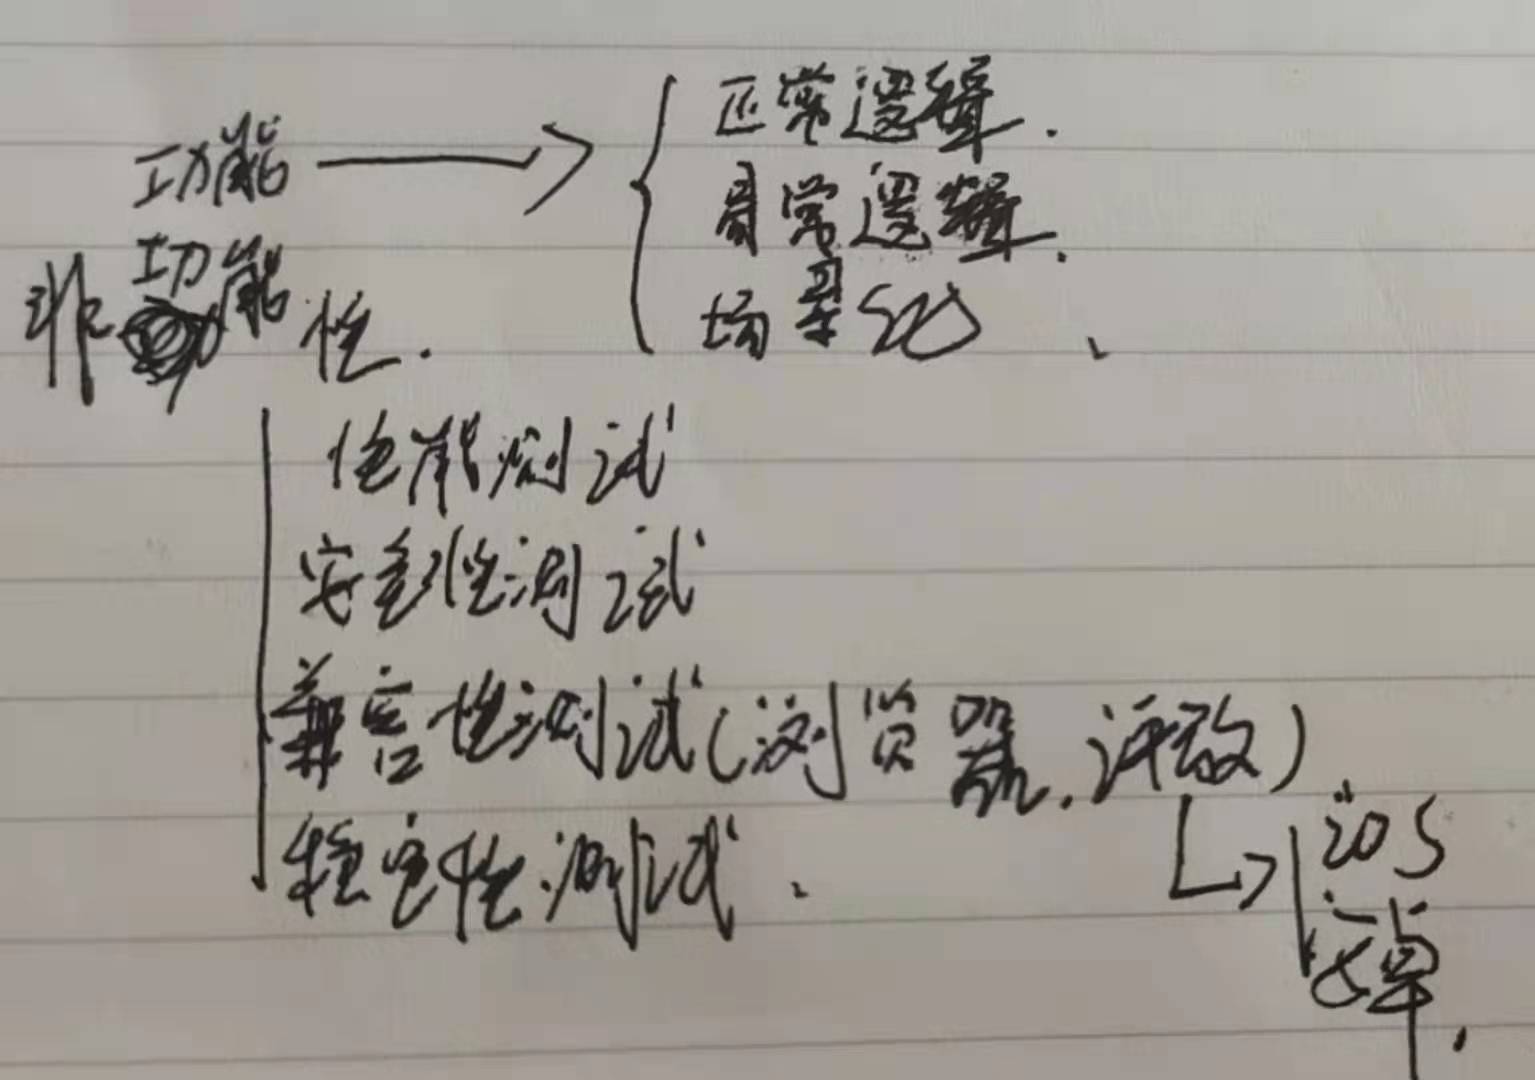 功能
正常逻辑.
异常逻辑.
场景化、
非功能性.
性能测试
安全性测试
兼容性测试(浏览器.
稳定性测试、
iOS
安卓.